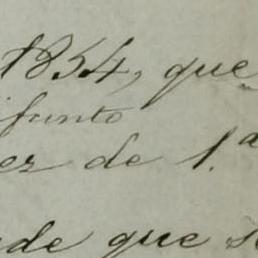 1854, que
ifunto
ez de 1.ª
de que s